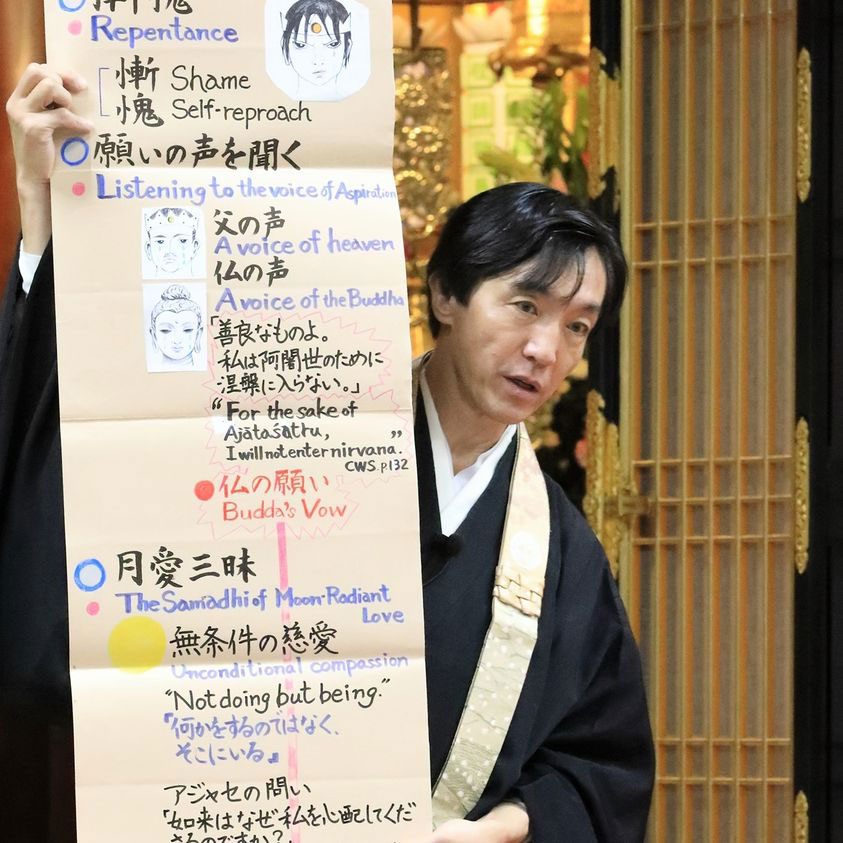 Repentance
慚 Shame
愧 Self-reproach
願いの声を聞く
Listening to the voice of Aspiration
父の声
A voice of heaven
仏の声
A voice of the Buddha
「善良なものよ。
私は阿闍世のために
涅槃に入らない。」
“For the sake of
Ajātaśatru,
I will not enter nirvana.”
CWS. p132
仏の願い
Budda's Vow
月愛三昧
The Samādhi of Moon-Radiant
Love
無条件の慈愛
Unconditional compassion
“Not doing but being.”
『何かをするのではなく、
そこにいる』
アジャセの問い
「如来はなぜ私を心配してくだ
さるのですか？」